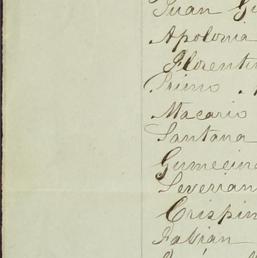 Juan
Apolonia
Florentin
Primo
Macario
Santana
Gumecin
Severian
Crispin
Fabian